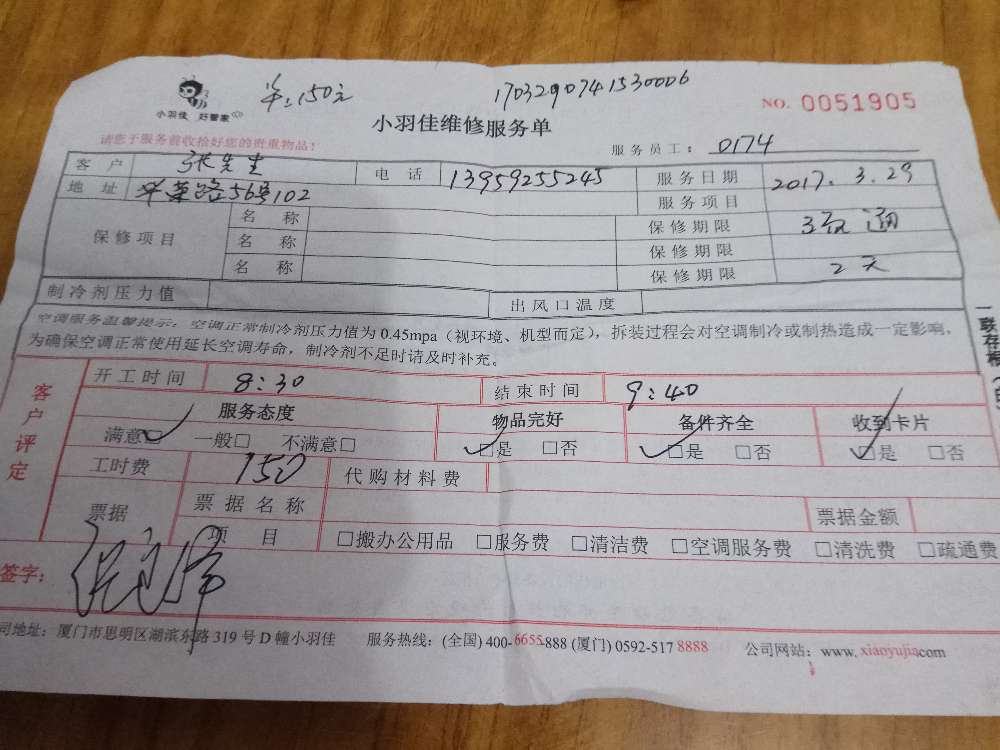 单:150元
1703290741530006
小羽佳 好管家
NO. 0051905
小羽佳维修服务单
请您于服务前收拾好您的贵重物品!
服务员工: 0174
客户 张先生 电话 13959255245 服务日期 2017.3.29
地址 华荣路56号102 服务项目
保修项目 名称 保修期限
名称 保修期限
名称 保修期限 2天
制冷剂压力值 出风口温度
空调服务温馨提示:空调正常制冷剂压力值为0.45mpa(视环境、机型而定),拆装过程会对空调制冷或制热造成一定影响,
为确保空调正常使用延长空调寿命,制冷剂不足时请及时补充。
一联存根
客户评定
开工时间 8:30 结束时间 9:40
服务态度 物品完好 备件齐全 收到卡片
满意□ 一般□ 不满意□ □是 □否 □是 □否 □是 □否
工时费 150 代购材料费
票据 票据名称 票据金额
项目 □搬办公用品 □服务费 □清洁费 □空调服务费 □清洗费 □疏通费
签字:
司地址:厦门市思明区湖滨东路319号D幢小羽佳 服务热线:(全国)400-6655-888(厦门)0592-517 8888 公司网站:www.xiaoyujia.com